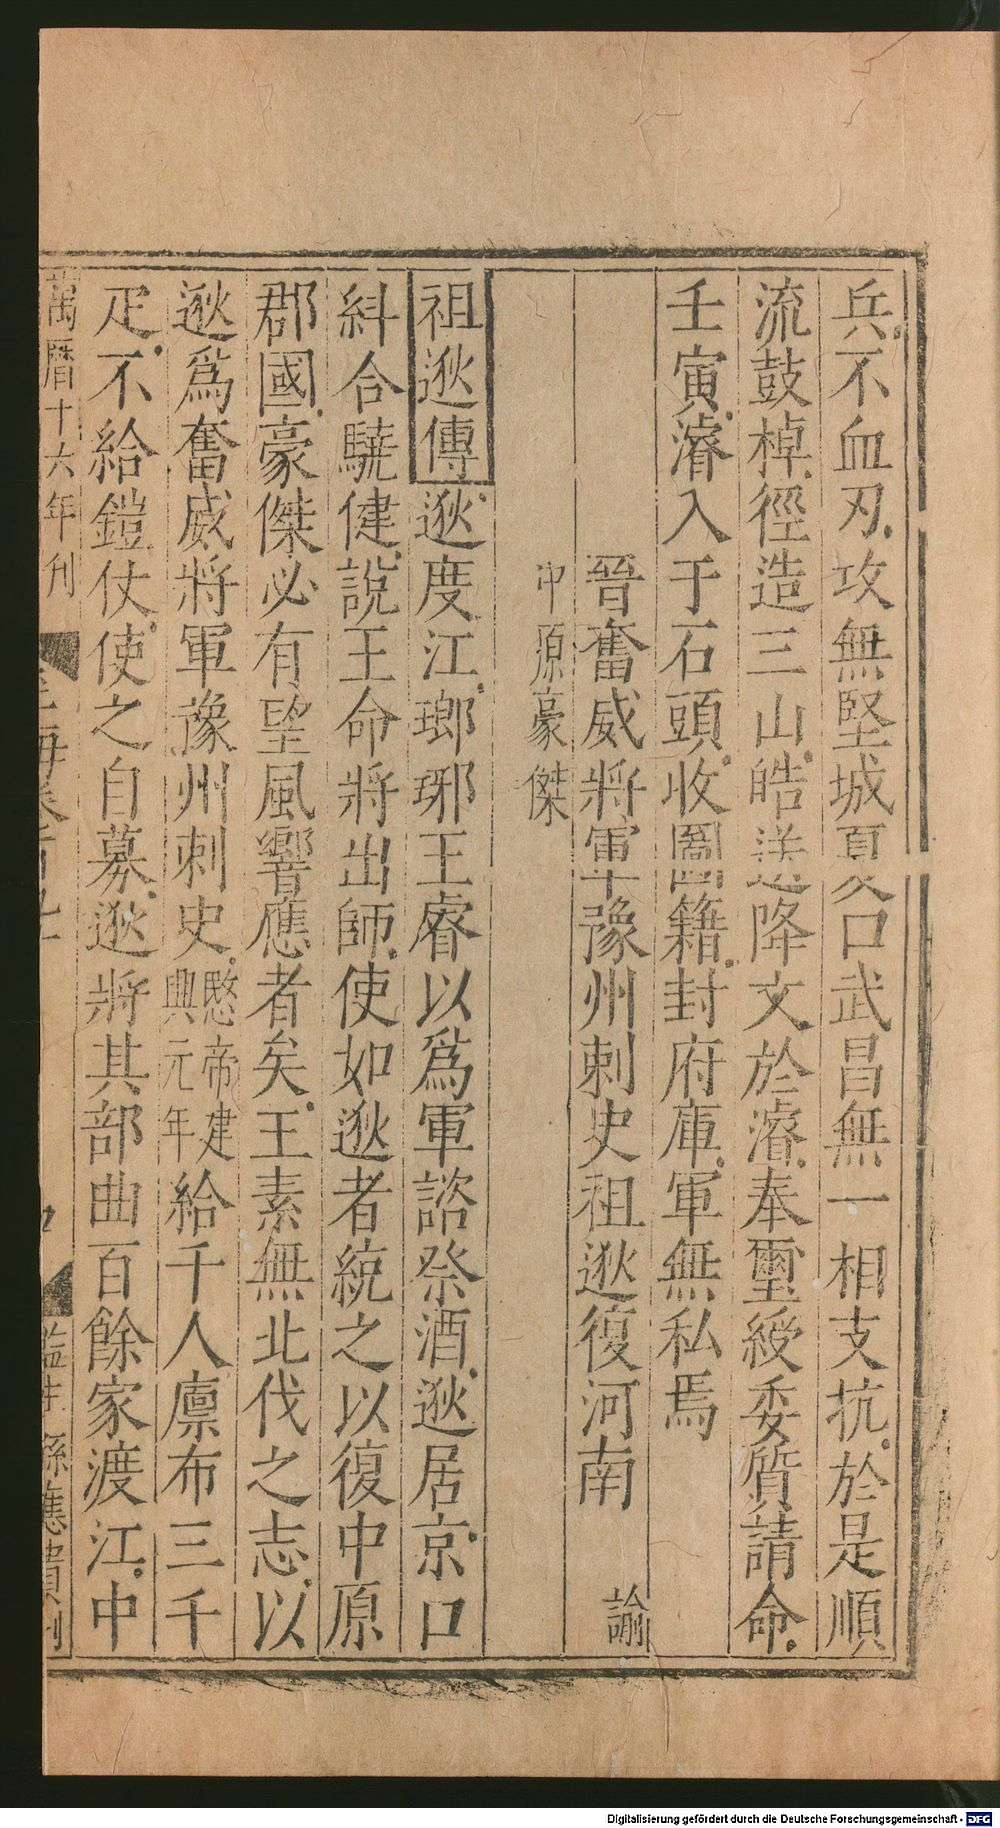 兵不血刃攻無堅城夏口武昌無一相支抗於是順
流鼓棹徑造三山皓送降文於濬奉璽綬委質請命
壬寅濬入于石頭收圖籍封府庫軍無私焉
晉奮威將軍豫州刺史祖逖復河南諭
中原豪傑
祖逖傳逖度江瑯琊王睿以爲軍諮祭酒逖居京口
糾合驍健說王命將出師使如逖者統之以復中原
郡國豪傑必有望風響應者矣王素無北伐之志以
逖爲奮威將軍豫州刺史愍帝建興元年給千人廩布三千
疋不給鎧仗使之自募逖將其部曲百餘家渡江中
萬曆十六年刊 玉海卷 監生孫應
Digitalisierung gefördert durch die Deutsche Forschungsgemeinschaft - DFG